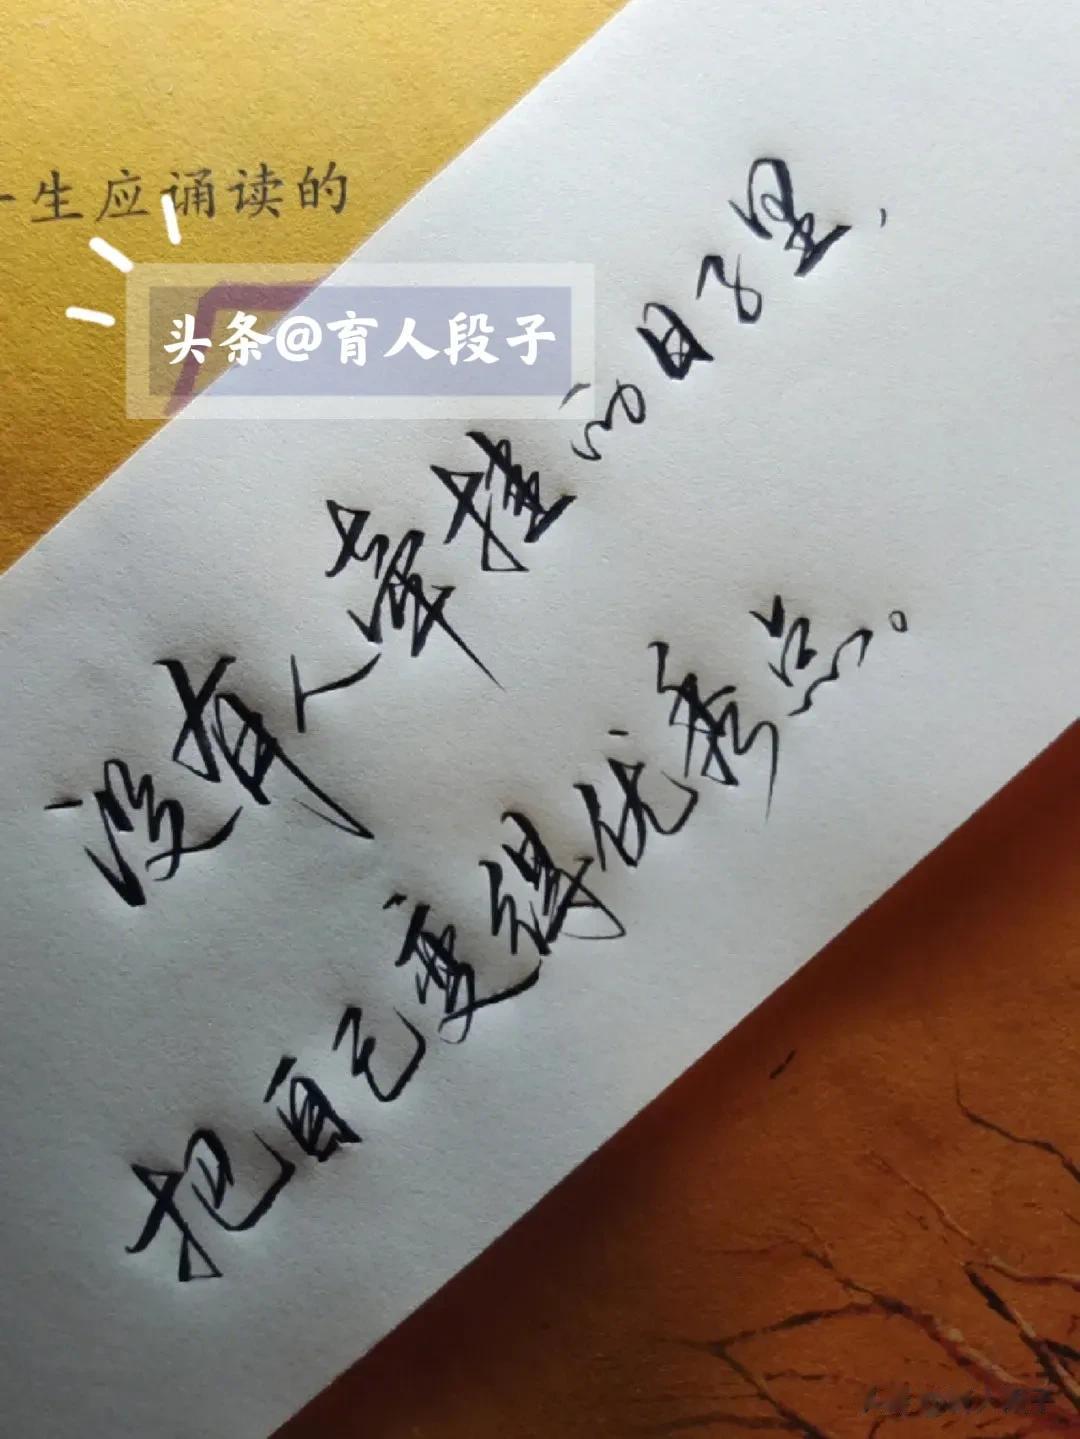 一生应诵读的
头条@育人段子
没有人牵挂的日子里，
把自己变得优秀点。